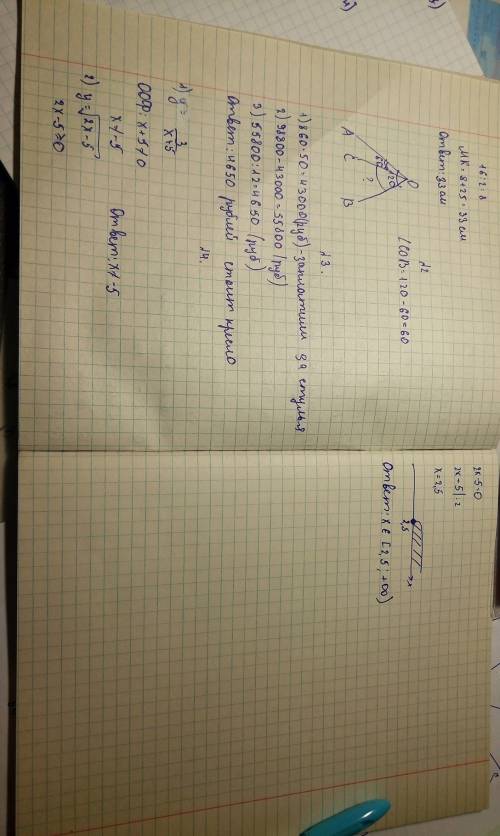 16:2=8
МК = 8+25 = 33 см
Ответ: 33 см
№2
∠COB = 120 - 60 = 60
O
120
60
?
A
C
B
№3.
1) 860·50 = 43000 (руб) - заплатили за стулья
2) 98800 - 43000 = 55800 (руб)
3) 55800 : 12 = 4650 (руб)
Ответ: 4650 рублей стоит кресло
№4.
1) y = 3/(x+5)
ООФ: x+5≠0
x≠-5
Ответ: x≠-5
2) y = √(2x-5)
2x-5≥0
2x-5=0
2x=5|:2
x=2,5
2,5
x
Ответ: x ∈ [2,5; +∞)